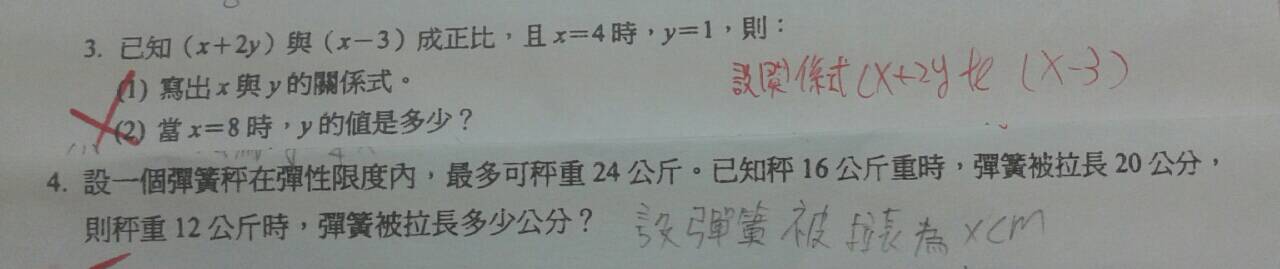 3. 已知（x+2y）與（x−3）成正比，且 x=4 時，y=1，則：
(1) 寫出 x 與 y 的關係式。
設關係式 (x+2y (x-3)
(2) 當 x=8 時，y 的值是多少？
4. 設一個彈簧秤在彈性限度內，最多可秤重 24 公斤。已知秤 16 公斤重時，彈簧被拉長 20 公分，
則秤重 12 公斤時，彈簧被拉長多少公分？
設彈簧被拉長為 xcm